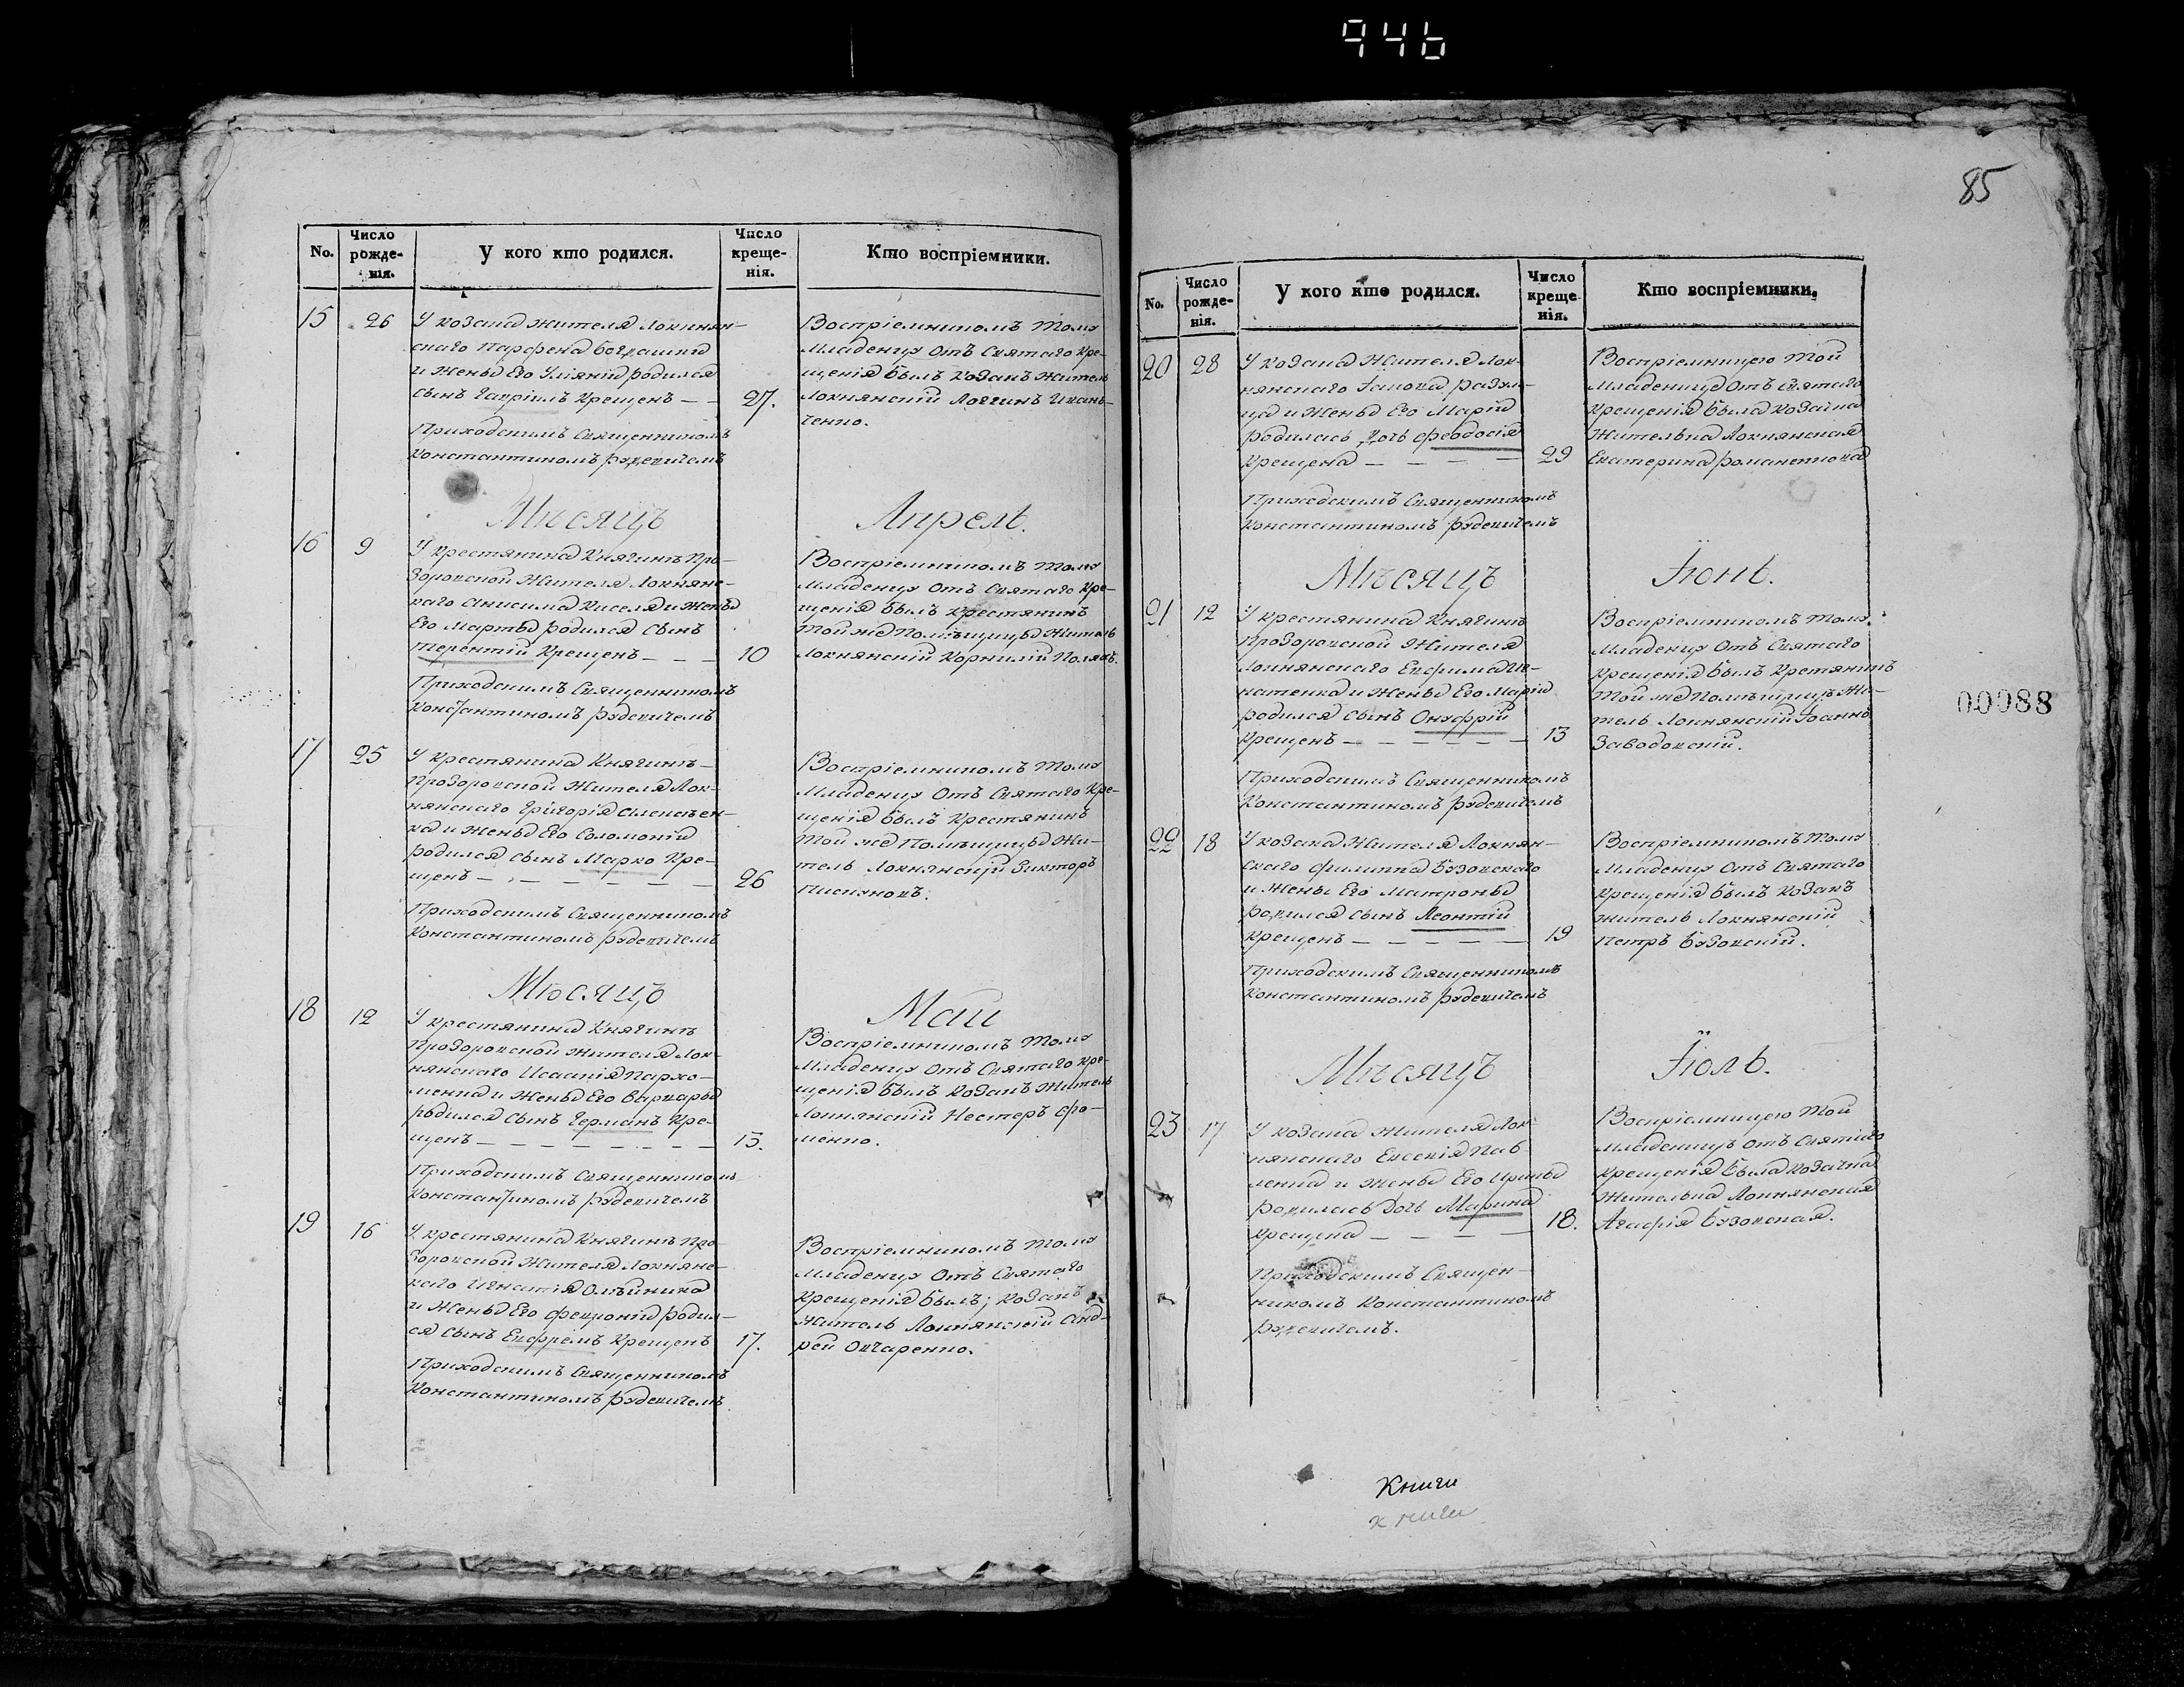 946
No.
Число рожде- нія.
У кого кто родился.
Число креще- нія.
Кто воспріемники.
15 26 У козака жителя Локнян-
скаго Парфена Богдашки
и жены Его Уліяніи родился
сынъ Гавріилъ крещенъ — — 27.
Приходскимъ Священникомъ
Константиномъ Рудевичемъ
Воспріемникомъ тому
Младенцу Отъ Святаго Кре-
щенія былъ Козакъ житель
Локнянскій Логгинъ Иван-
ченко.
Мѣсяцъ Апрель.
16 9 У крестянина Княгинѣ Про-
зоровской Жителя Локнянс-
каго Анисима Киселя и Жены
Его Марты родился сынъ
Терентій Крещенъ — — — 10
Приходскимъ Священникомъ
Константиномъ Рудевичемъ
Воспріемникомъ тому
Младенцу Отъ Святаго Кре-
щенія былъ крестянинъ
той же Помѣщицы Житель
Локнянскій Корнилій Полякъ.
17 25 У крестянина Княгинѣ-
Прозоровской Жителя Лок-
нянскаго Григорія Алексѣен-
ка и Жены Его Соломоніи
родился сынъ Марко Кре-
щенъ — — — — — — — 26
Приходскимъ Священникомъ
Константиномъ Рудевичемъ
Воспріемникомъ тому
Младенцу Отъ Святаго Кре-
щенія былъ Крестянинъ
той же Помѣщицы Жи-
тель Локнянскій Викторъ
Мѣсяцъ Май
18 12 У крестянина Княгинѣ
Прозоровской жителя Лок-
нянскаго Исаакія Пархо-
менка и Жены Его Варвары
родился сынъ Германъ Кре-
щенъ — — — — — — — 13.
Приходскимъ Священникомъ
Константиномъ Рудевичемъ
Воспріемникомъ тому
Младенцу Отъ Святаго Кре-
щенія былъ Козакъ Житель
Локнянскій Нестеръ Фо-
менко.
19 16 У крестянина Княгинѣ Про-
зоровской Жителя Локнянс-
каго Игнатія Олѣйника
и Жены Его Февроніи родил-
ся сынъ Ефремъ Крещенъ 17.
Приходскимъ Священникомъ
Константиномъ Рудевичемъ
Воспріемникомъ тому
Младенцу Отъ Святаго
Крещенія былъ; Козакъ
Житель Локнянскій Анд-
рей Овчаренко.
85
No.
Число рожде- нія.
У кого кто родился.
Число креще- нія.
Кто воспріемники.
20 28 У козака Жителя Лок-
нянскаго Іакова
и Жены Его Маріи
родилась дочь Феодосія
Крещена — — — — 29
Приходскимъ Священникомъ
Константиномъ Рудевичемъ
Воспріемницею той
Младеницѣ Отъ Святаго
Крещенія была Козачка
Жителька Локнянская
Екатерина Романенкова
Мѣсяцъ Іюнь.
21 12 У крестянина Княгинѣ
Прозоровской Жителя
Локнянскаго Евфима Иг-
натенка и Жены Его Маріи
родился сынъ Онуфрій
Крещенъ — — — — — — 13
Приходскимъ Священникомъ
Константиномъ Рудевичемъ
Воспріемникомъ тому
Младенцу Отъ Святаго
Крещенія былъ Крестянинъ
той же Помѣщицѣ Жи-
тель Локнянскій Іоаннъ
Заводовскій.
00088
22 18 У козака Жителя Локнян-
скаго Филиппа Бузовскаго
и Жены Его Матроны
родился сынъ Леонтій
Крещенъ — — — — — — 19
Приходскимъ Священникомъ
Константиномъ Рудевичемъ
Воспріемникомъ тому
Младенцу Отъ Святаго
Крещенія былъ Козакъ
житель Локнянскій
Петръ Бузовскій.
Мѣсяцъ Іюль.
23 17 У козака Жителя Лок-
нянскаго Евсевія Пав
ленка и Жены Его Ирины
родилась дочь Марина
Крещена — — — — 18.
Приходскимъ Священ-
никомъ Константиномъ
Рудевичемъ.
Воспріемницею той
младеницѣ отъ Святаго
Крещенія была козачка
Жителька Локнянская
Агафія Бузовская.
Книги
книги